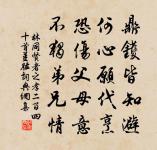 鼎鑊皆知避
何心願代烹
恐傷父母意
不獨弟兄情
林同賢者之孝二百四
十首詞典網